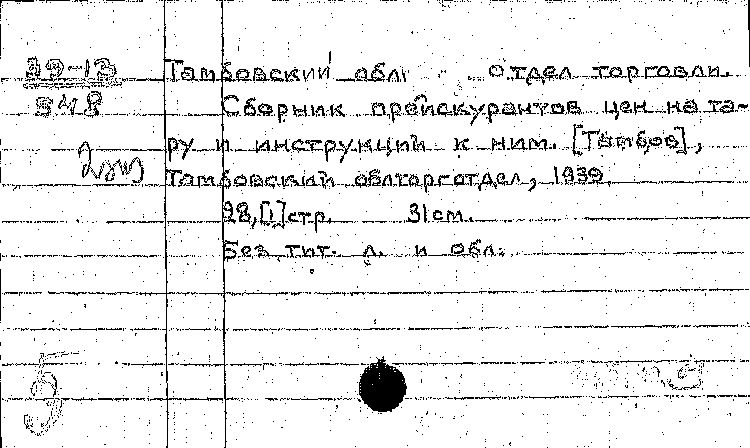 39-13 Тамбовский обл. отдел торговли.
548 Сборник прейскурантов цен на та-
ру и инструкций к ним. [Тамбов],
Тамбовский облторготдел, 1939.
28,[1]стр. 31см.
Без тит. л. и обл.